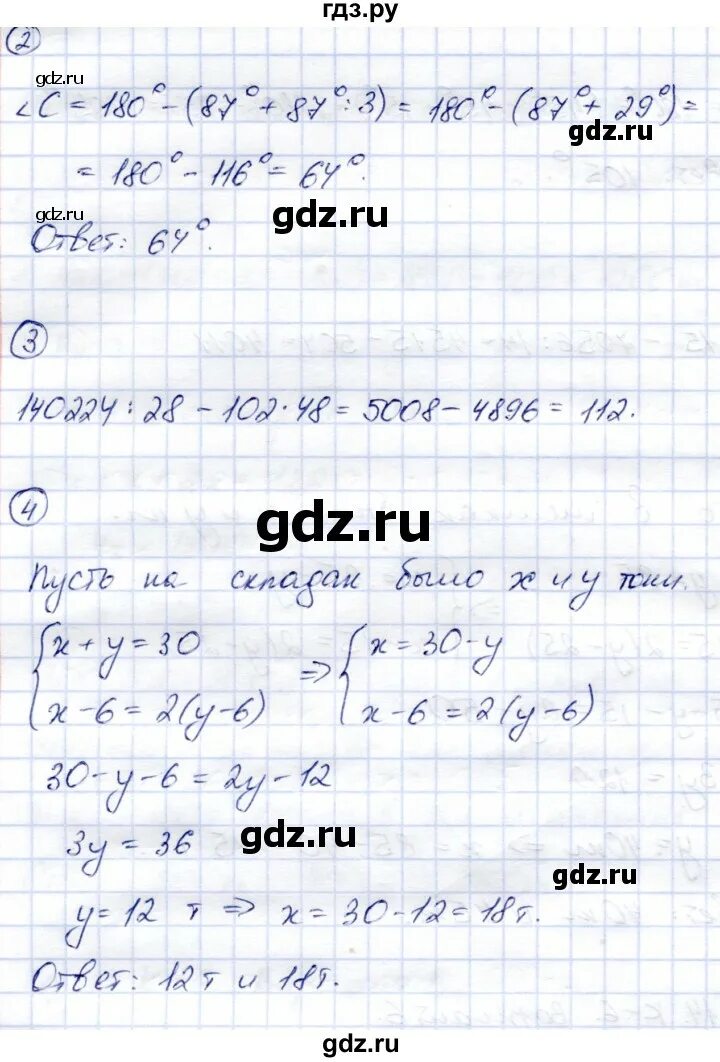 гдз.ру
2
gdz.ru
∠C = 180° - (87° + 87° : 3) = 180° - (87° + 29°) =
gdz.ru
= 180° - 116° = 64°.
gdz.ru
gdz.ru
Ответ: 64°.
3
140224 : 28 - 102 · 48 = 5008 - 4896 = 112.
4
gdz.ru
Пусть на складах было x и y тонн.
{x + y = 30 => {x = 30 - y
x - 6 = 2(y - 6) x - 6 = 2(y - 6)
30 - y - 6 = 2y - 12
3y = 36
gdz.ru
gdz.ru
y = 12 т => x = 30 - 12 = 18т.
Ответ: 12т и 18т.
gdz.ru
gdz.ru